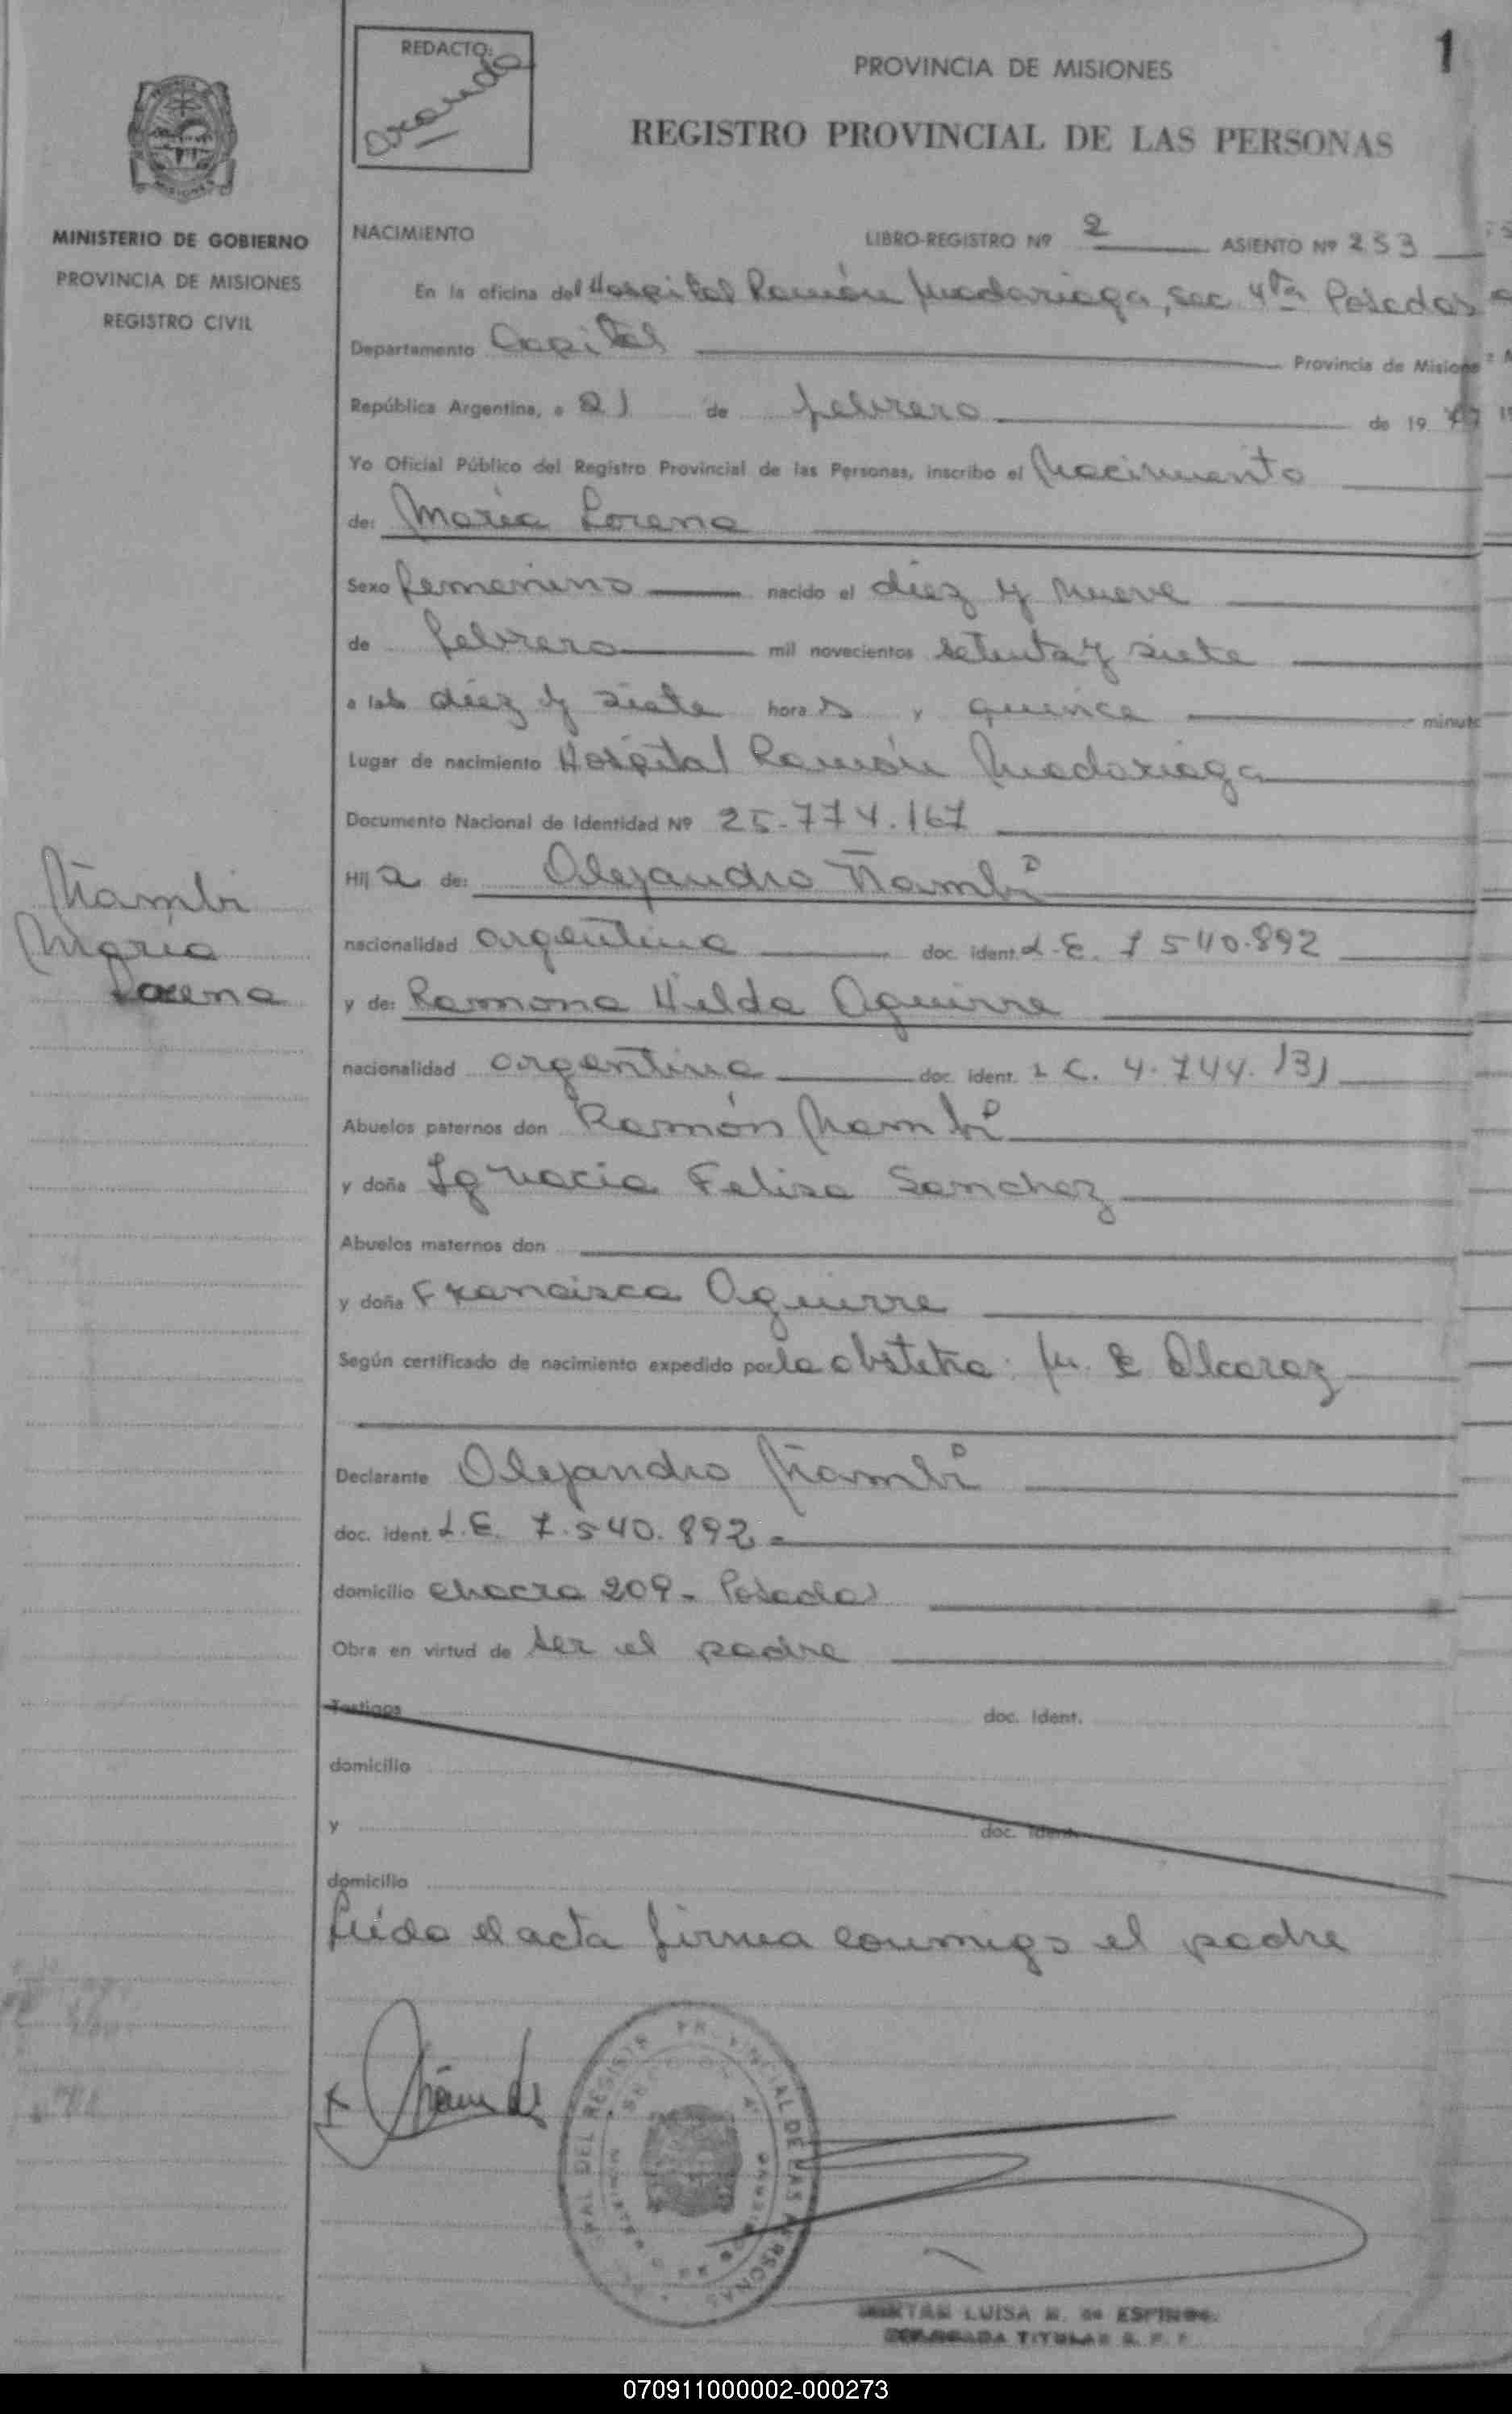 1
REDACTO:
Aranda
PROVINCIA DE MISIONES
REGISTRO PROVINCIAL DE LAS PERSONAS
MINISTERIO DE GOBIERNO
PROVINCIA DE MISIONES
REGISTRO CIVIL
NACIMIENTO
LIBRO-REGISTRO Nº 2 ASIENTO Nº 253
En la oficina del Hospital Ramón Madariaga, sec 4ta Posadas
Departamento Capital Provincia de Misiones
República Argentina, a 21 de febrero de 19 77
Yo Oficial Público del Registro Provincial de las Personas, inscribo el Nacimiento
de: María Lorena
Sexo femenino nacido el diez y nueve
de febrero mil novecientos setenta y siete
a las diez y siete horas y quince minuto
Lugar de nacimiento Hospital Ramón Madariaga
Documento Nacional de Identidad Nº 25.774.167
Hij a de: Alejandro Ñambi
nacionalidad argentina doc. ident. L.E. 7 540.892
y de: Ramona Hilda Aguirre
nacionalidad argentina doc. ident. L C. 4.744.131
Abuelos paternos don Ramón Ñambi
y doña Ignacia Felisa Sanchez
Abuelos maternos don
y doña Francisca Aguirre
Según certificado de nacimiento expedido por la obstetra: M. E Alcaraz
Declarante Alejandro Ñambi
doc. ident. L.E. 7.540.892
domicilio chacra 209 - Posadas
Obra en virtud de ser el padre
Testigos doc. Ident.
domicilio
y doc. Ident.
domicilio
Leída el acta firma conmigo el padre
Ñambi
María
Lorena
LUISA
TITULAR
070911000002-000273